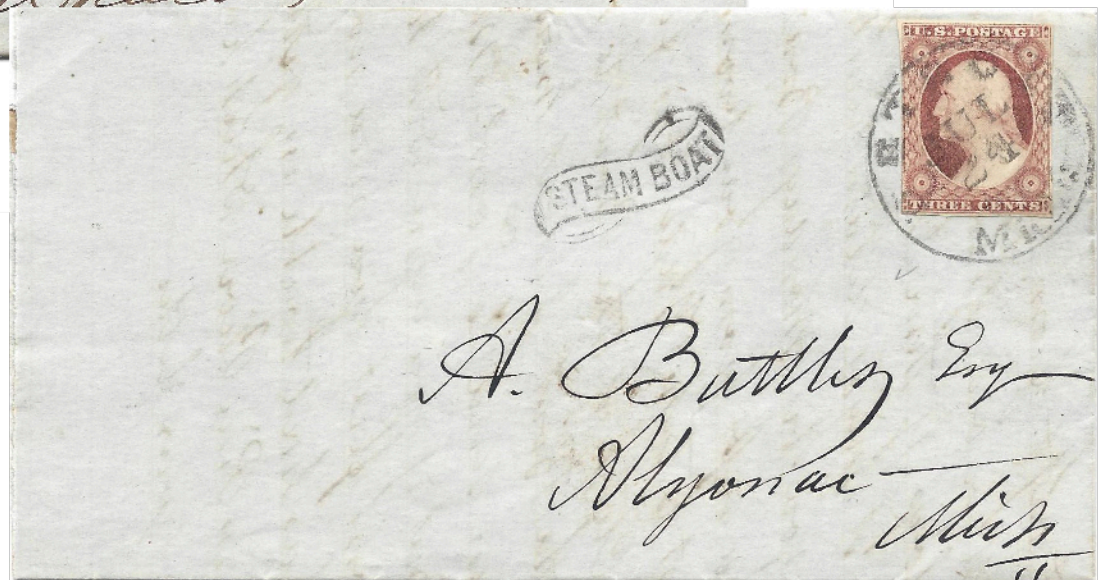 U.S. POSTAGE
JUL
24
THREE CENTS
STEAM BOAT
MICH
A. Buttles Esq
Algonac
Mich